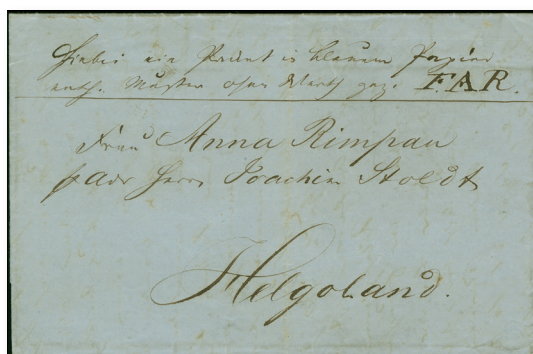 Hiebei ein Packet in blauem Papier
enth. Muster ohne Werth gez. F.A.R.
Frau Anna Rimpau
p adr Herrn Joachim Stoldt
Helgoland.